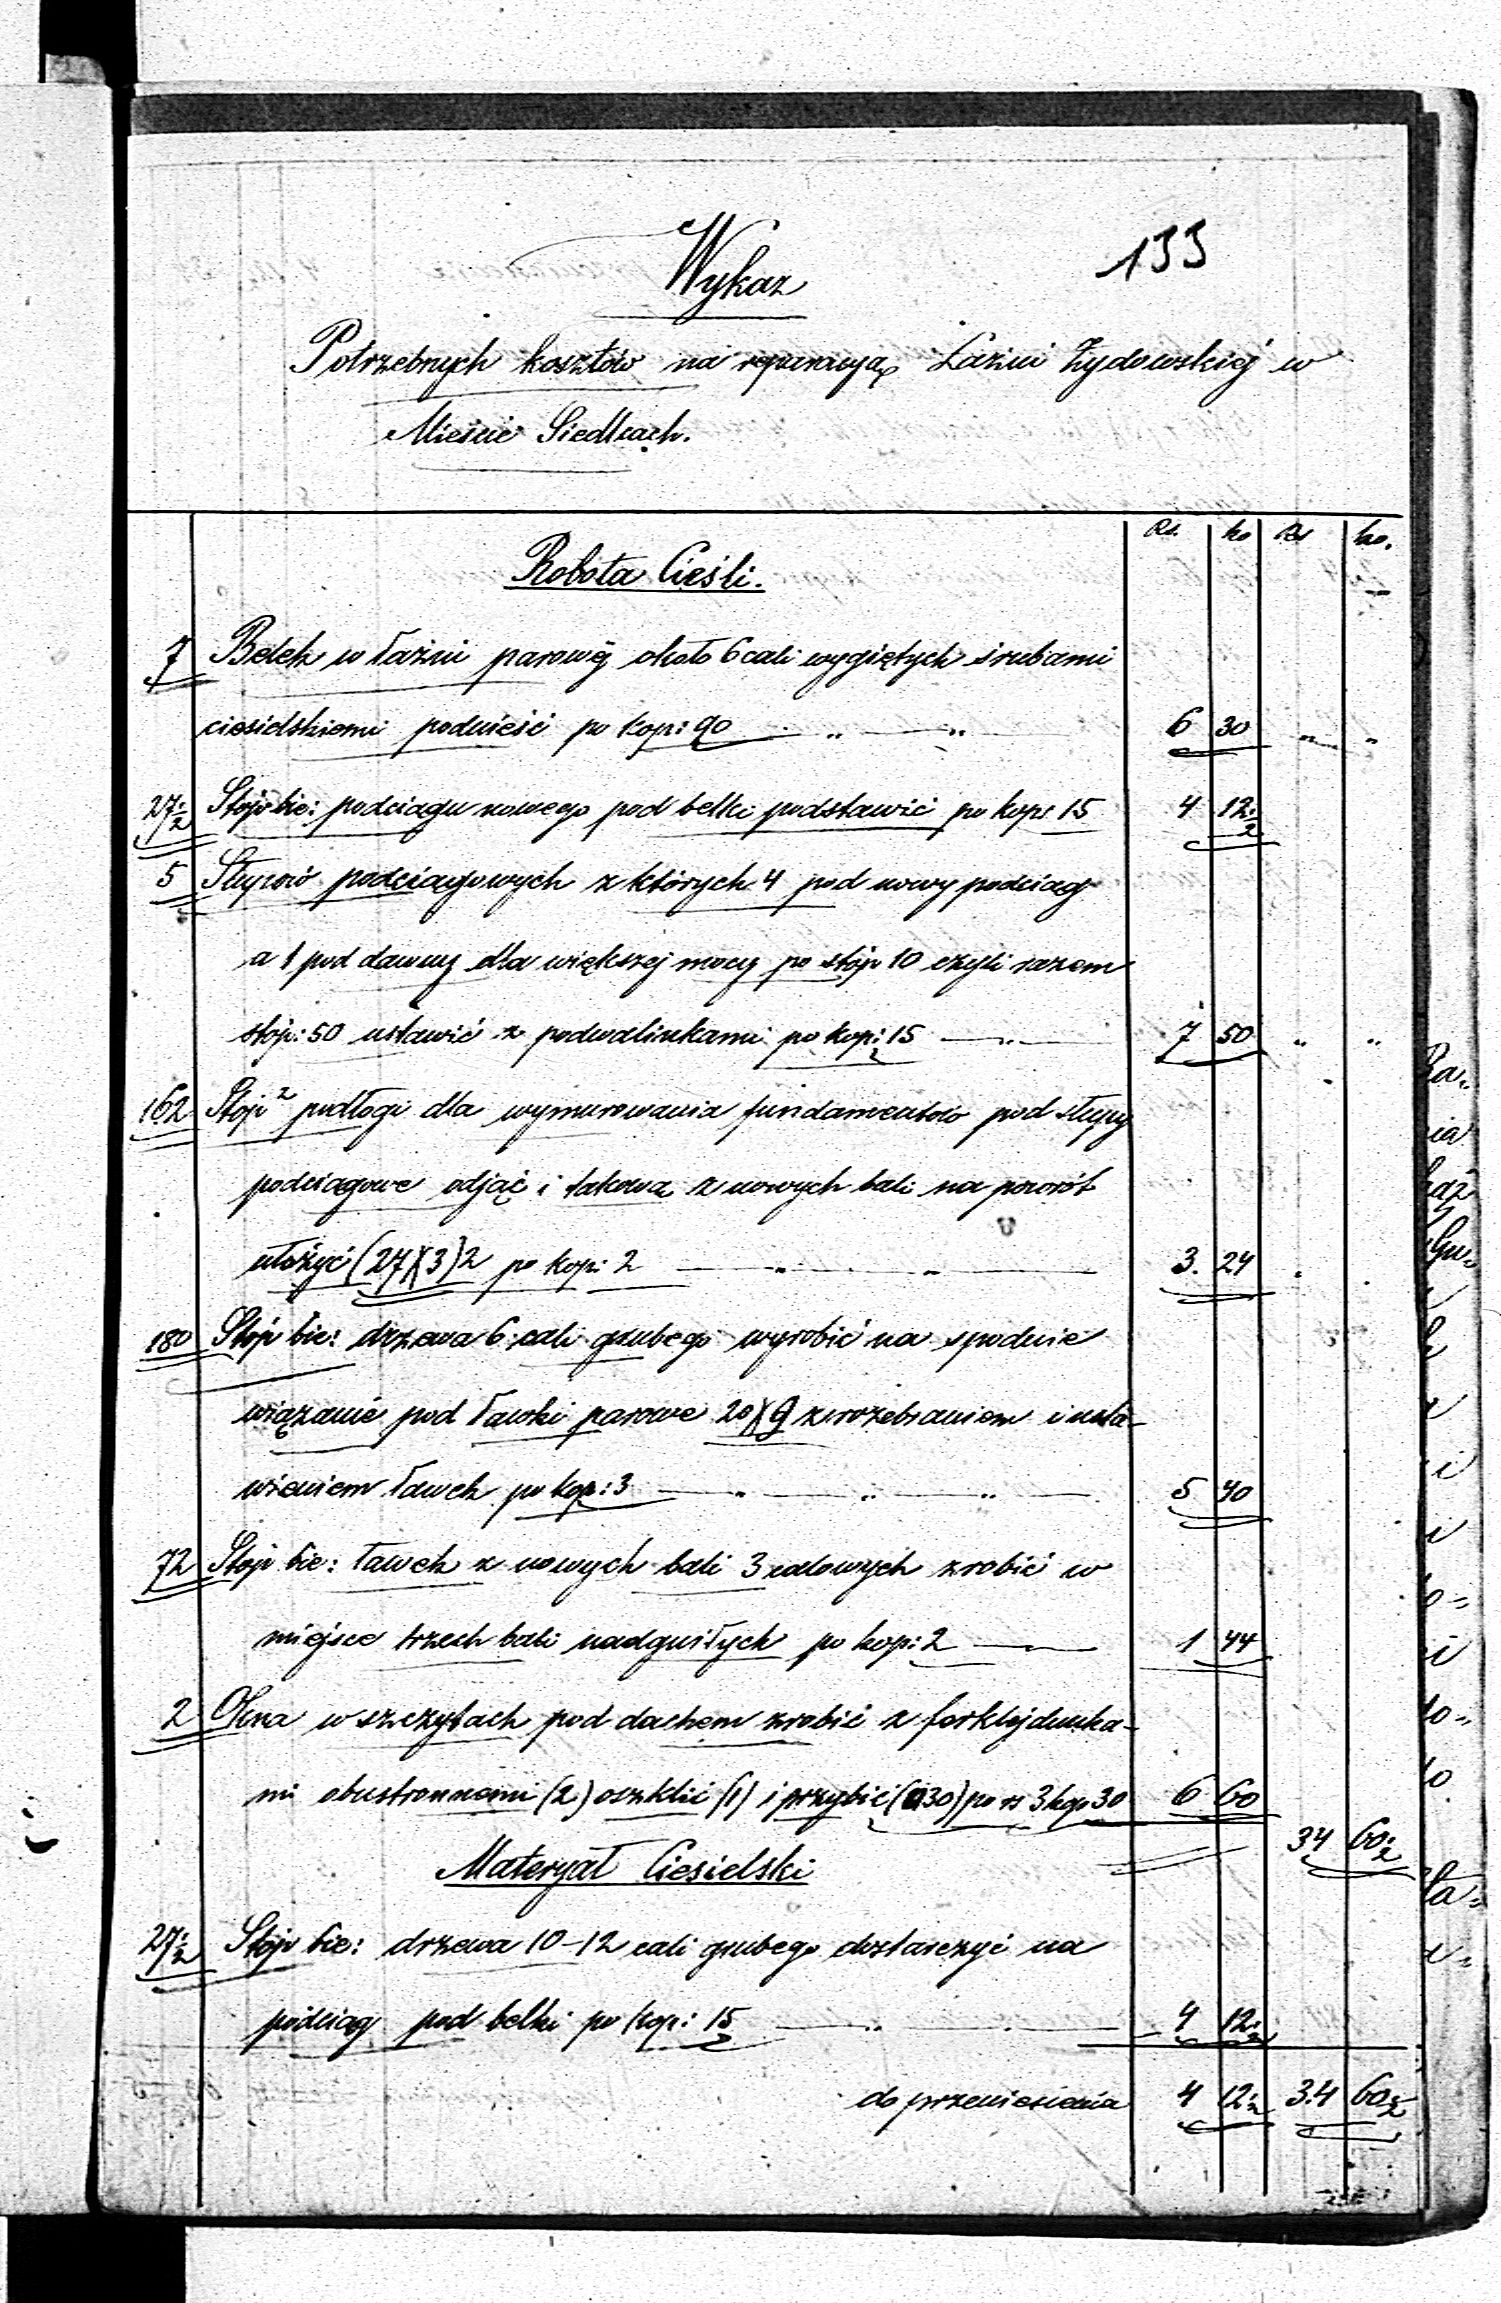 133
Wykaz
Potrzebnych kosztów na reparacyą Łaźni Żydowskiej w
Mieście Siedlcach.
Rs. ko Rs ko.
Robota Cieśli.
7 Belek w łaźni parowéj około 6 cali wygiętych śrubami
ciesielskiemi podnieść po kop: 90 " " 6 30 " "
27 1/2 Stóp bie: podciągu nowego pod belki podstawić po kop: 15 4 12 1/2
5 Słupow podciągowych z których 4 pod nowy podciąg
a 1 pod dawny dla większej mocy po stóp 10 czyli razem
stóp: 50 ustawić z podwalinkami po kop: 15 " 7 50 " "
162 Stóp² podłogi dla wymurowania fundamentow pod słupy
podciągowe odjąć i takową z nowych bali na powrót
ułożyć (27)(3)2 po kop: 2 " " 3. 24
180 Stóp bie: drzewa 6 cali grubego wyrobić na spodnie
wiązanie pod ławki parowe 20)(9 z rozebraniem i usta-
wieniem ławek po kop: 3 " " " 5 40
72 Stóp bie: ławek z nowych bali 3 calowych zrobić w
miejsce trzech bali nadgniłych po kop: 2 1 44
2 Okna w szczytach pod dachem zrobić z forklejdunka-
mi obustronnemi (2) oszklić (1) i przybić (30) po rs 3 kop 30 6 60
34 60 1/2
Materyał Ciesielski
27 1/2 Stóp bie: drzewa 10-12 cali grubego dostarczyć na
podciąg pod belki po kop: 15 " 4 12 1/2
do przeniesienia 4 12 1/2 34 60 1/2